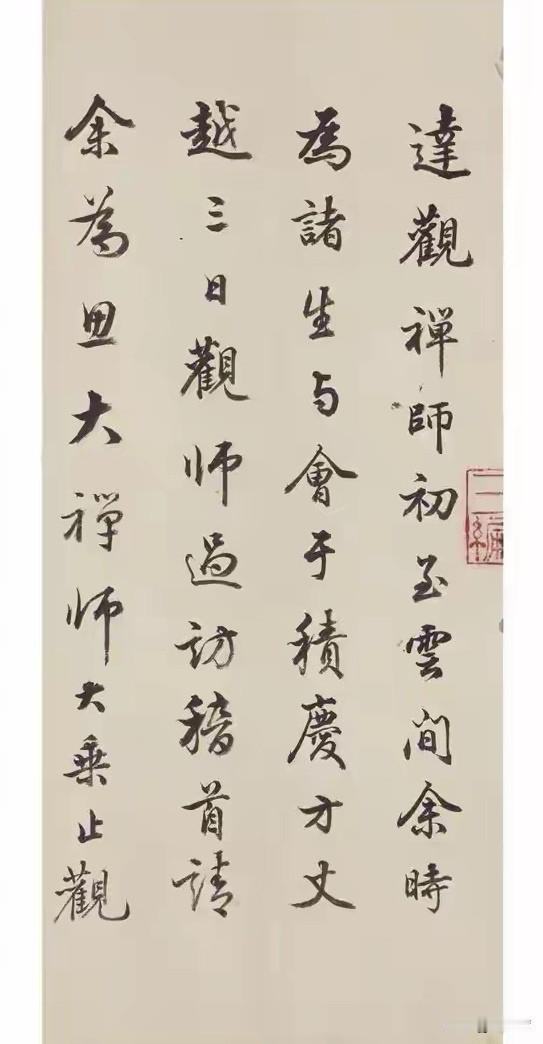 達觀禪師初至雲間余時
為諸生与會于積慶方丈
越三日觀师過訪稽首請
余為思大禪师大乗止觀